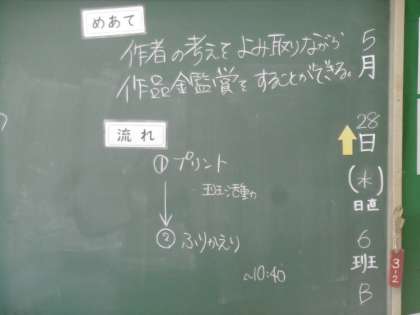 めあて
作者の考えをよみ取りながら
作品金監賞をすることができる。
流れ
① プリント
班活動
② ふりかえり
~10:40
5
月
28
日
(木)
日直
6
班
B
3-2